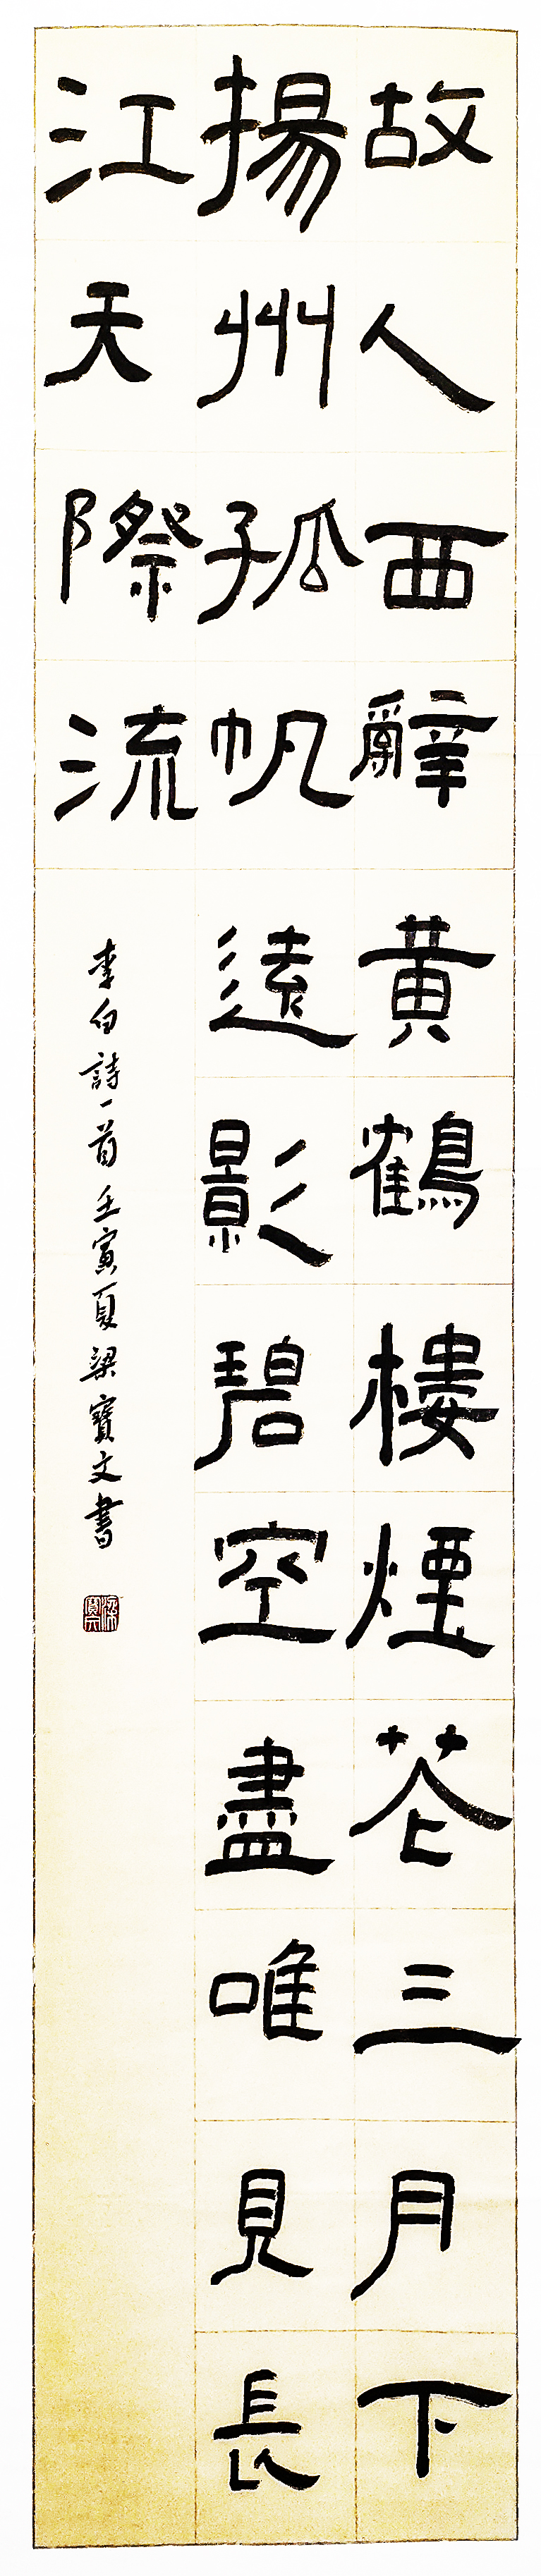 故人西辭黃鶴樓煙花三月下
揚州孤帆遠影碧空盡唯見長
江天際流
李白詩一首壬寅夏梁寶文書